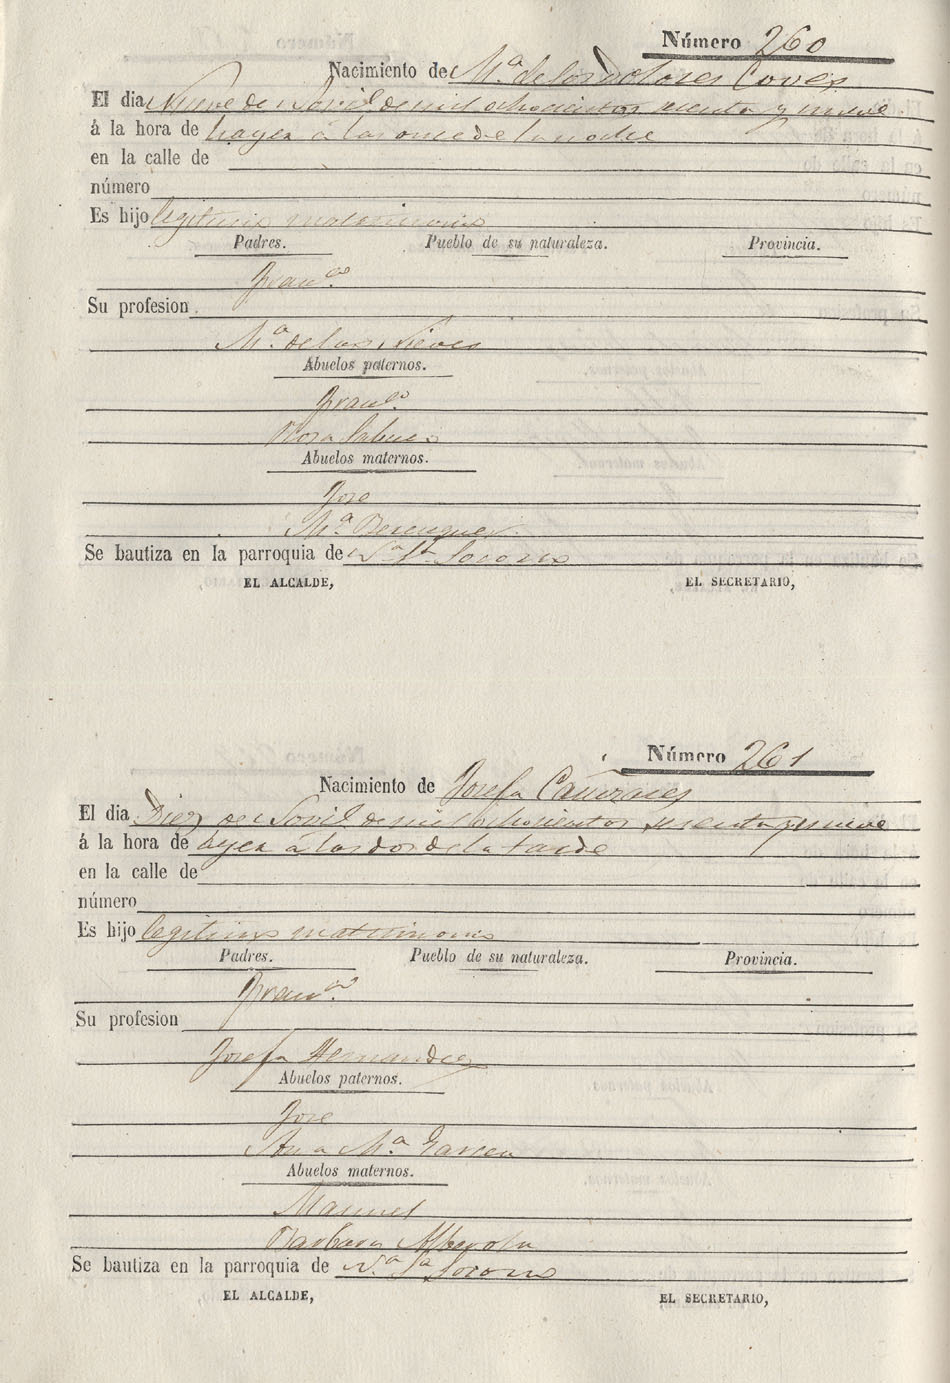 Número 260
Nacimiento de Mª de los Dolores Coves
El dia Nueve de Abril de mil ochocientos sesenta y nueve
á la hora de hayer á las once de la noche
en la calle de
número
Es hijo legitimo matrimonio
Padres. Pueblo de su naturaleza. Provincia.
Franco.
Su profesion
Mª de las Nieves
Abuelos paternos.
Franco.
Rosa
Abuelos maternos.
Jose
Mª Berenguer
Se bautiza en la parroquia de Nª Sª Socorro
EL ALCALDE, EL SECRETARIO,
Número 261
Nacimiento de Josefa Cañizares
El dia Diez de Abril de mil ochocientos sesenta y nueve
á la hora de ayer á las dos de la tarde
en la calle de
número
Es hijo legitimo matrimonio
Padres. Pueblo de su naturaleza. Provincia.
Franco.
Su profesion
Josefa Hernandez
Abuelos paternos.
Jose
Ana Mª Garcia
Abuelos maternos.
Manuel
Barbara Alberola
Se bautiza en la parroquia de Nª Sª Socorro
EL ALCALDE, EL SECRETARIO,